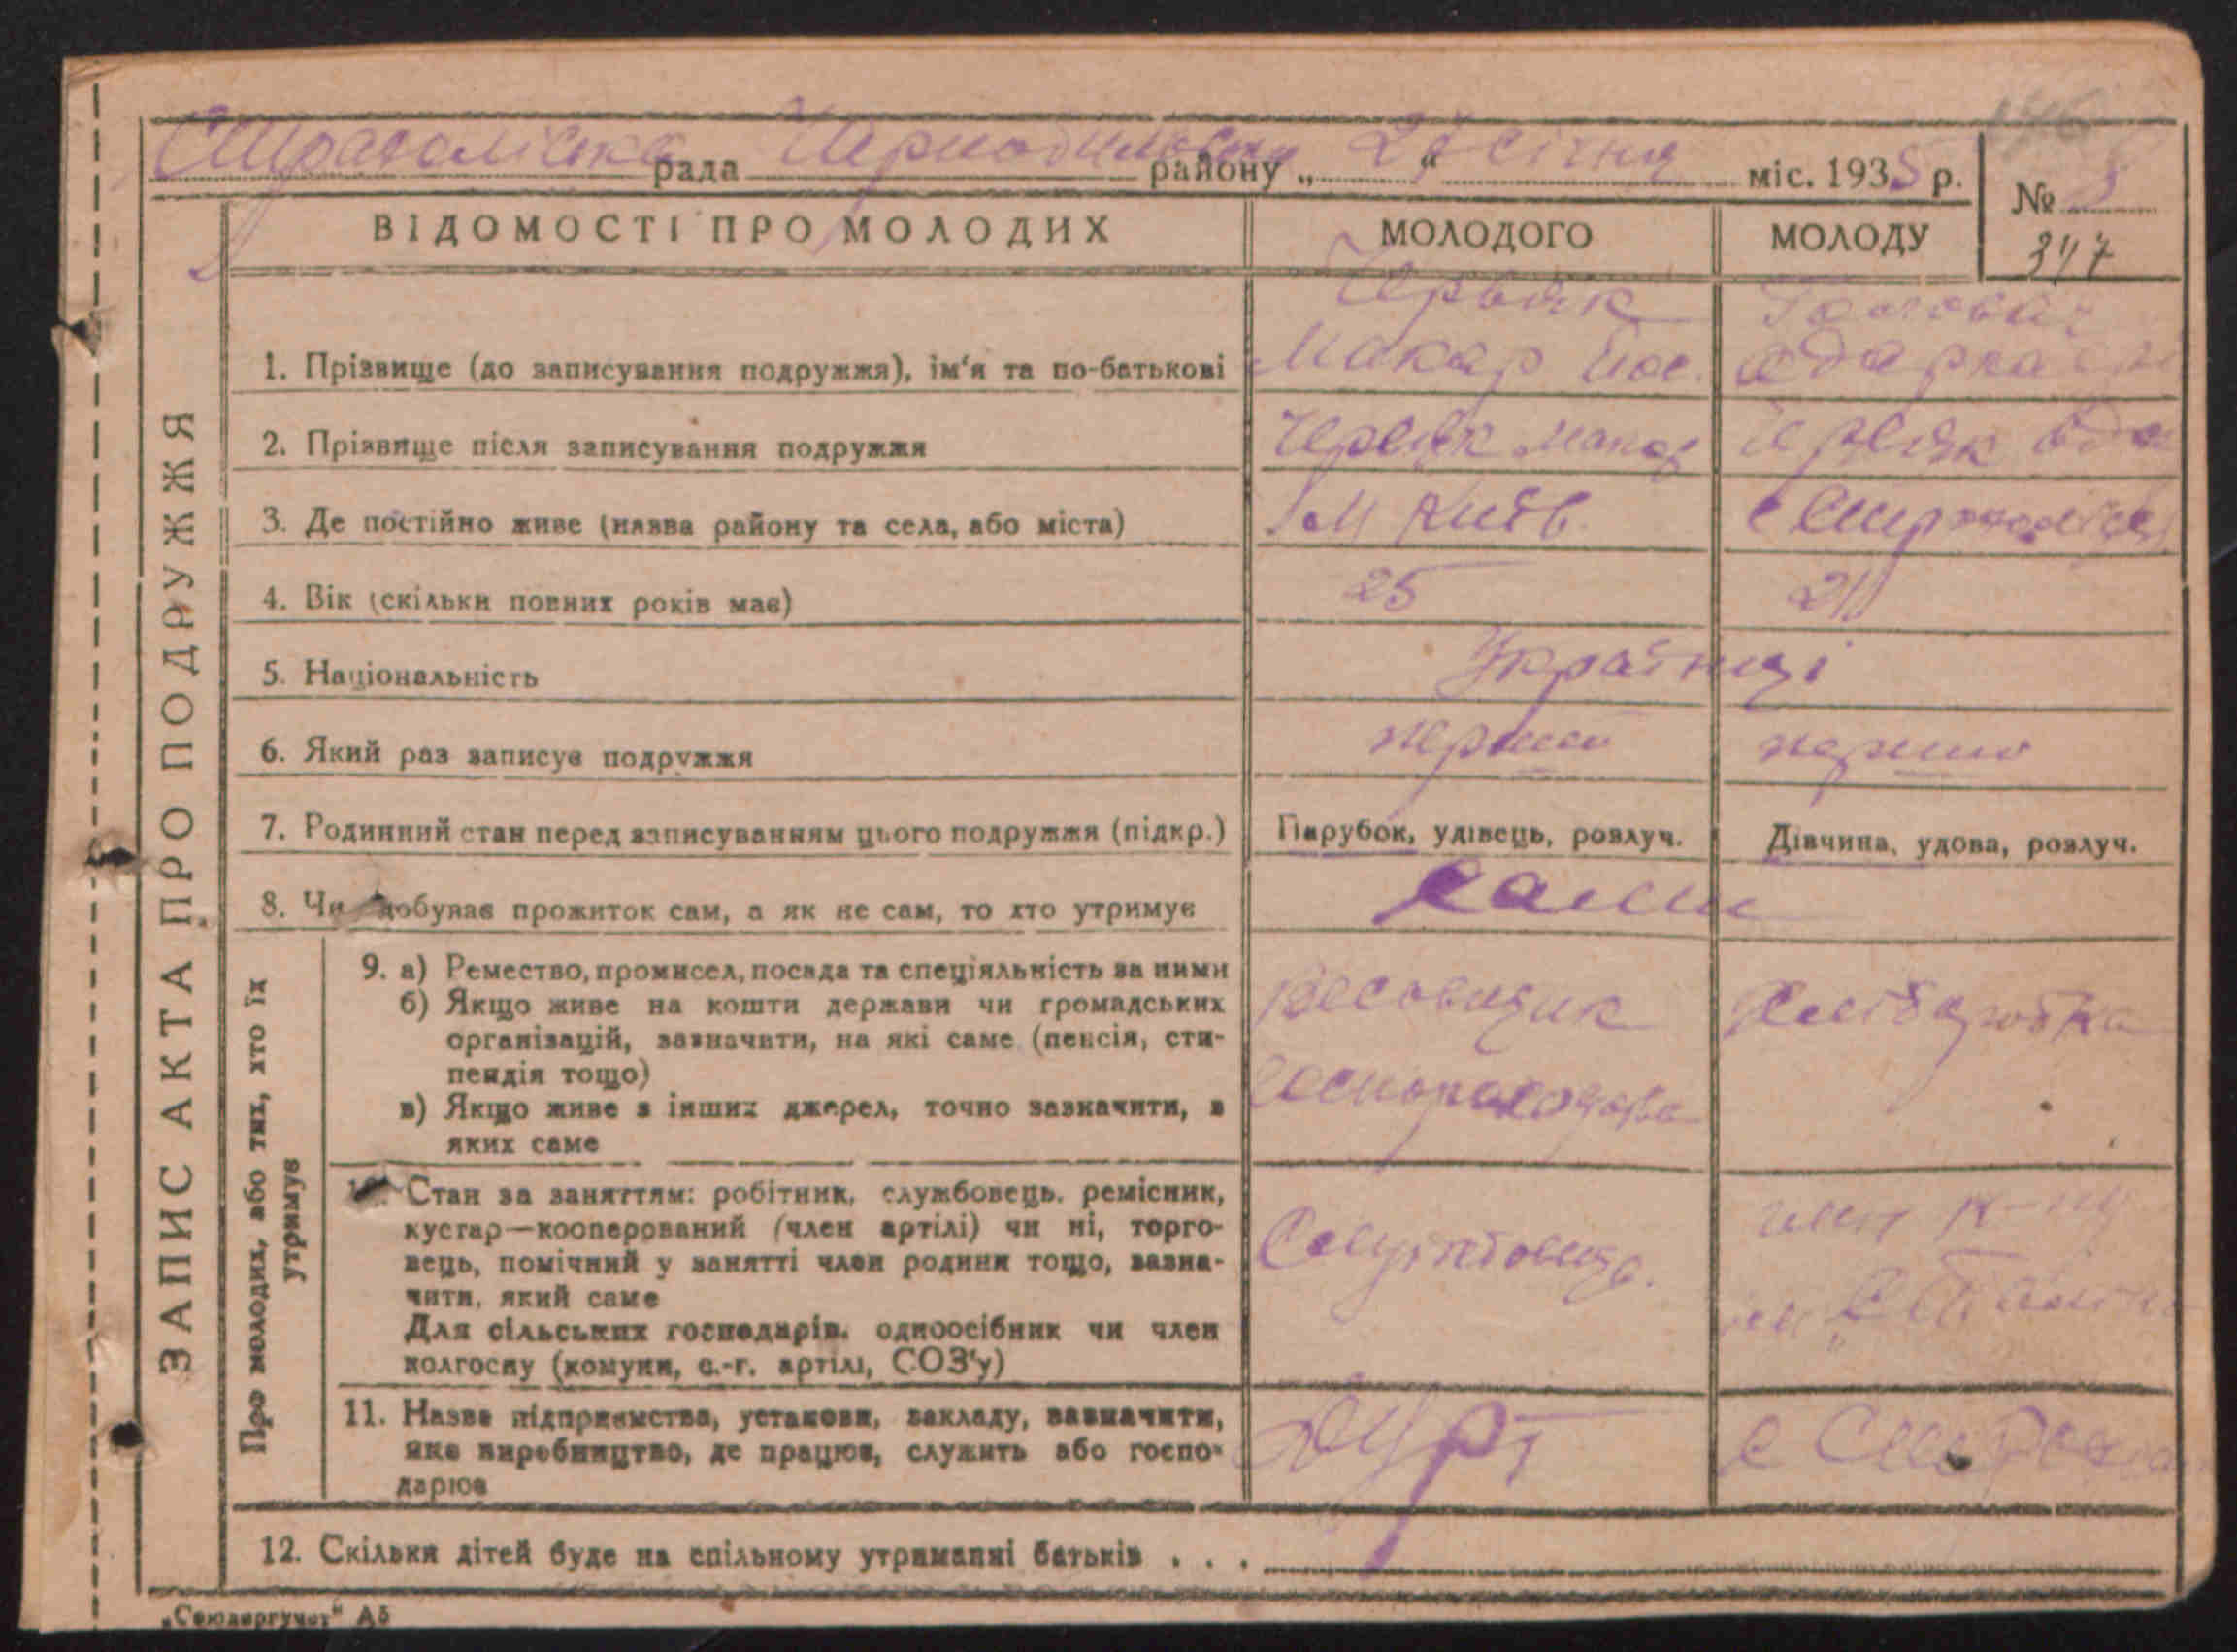 рада району „ 27 " січня міс. 1935 р.
№ 5
347
ЗАПИС АКТА ПРО ПОДРУЖЖЯ
ВІДОМОСТІ ПРО МОЛОДИХ МОЛОДОГО МОЛОДУ
Червяк
1. Прізвище (до записування подружжя), ім'я та по-батькові Макар Йос. Одарка
2. Прізвище після записування подружжя Червяк Макар Червяк Ода
3. Де постійно живе (назва району та села, або міста) м Київ. с
4. Вік (скільки повних років має) 25 21
5. Національність Українці
6. Який раз записує подружжя перший перший
7. Родинний стан перед записуванням цього подружжя (підкр.) Парубок, удівець, розлуч. Дівчина, удова, розлуч.
8. Чи добуває прожиток сам, а як не сам, то хто утримує сами
Про молодих, або тих, хто їх утримує
9. а) Ремество, промисел, посада та спеціяльність за ними
б) Якщо живе на кошти держави чи громадських
організацій, зазначити, на які саме (пенсія, сти-
пендія тощо)
в) Якщо живе з інших джерел, точно зазначити, з
яких саме
весовщик Хлібаробка
10. Стан за заняттям: робітник, службовець, ремісник,
кустар—кооперований (член артілі) чи ні, торго-
вець, помічний у занятті член родини тощо, зазна-
чити, який саме
Для сільських господарів, одноосібник чи член
колгоспу (комуни, с.-г. артілі, СОЗ'у)
Службовець. член к-пу
11. Назва підприємства, установи, закладу, зазначити,
яке виробництво, де працює, служить або госпо-
дарює
с
12. Скільки дітей буде на спільному утриманні батьків . . .
„Союзоргучет" Аб